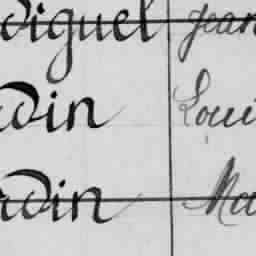 diguel Jean
din Loui
din Ma